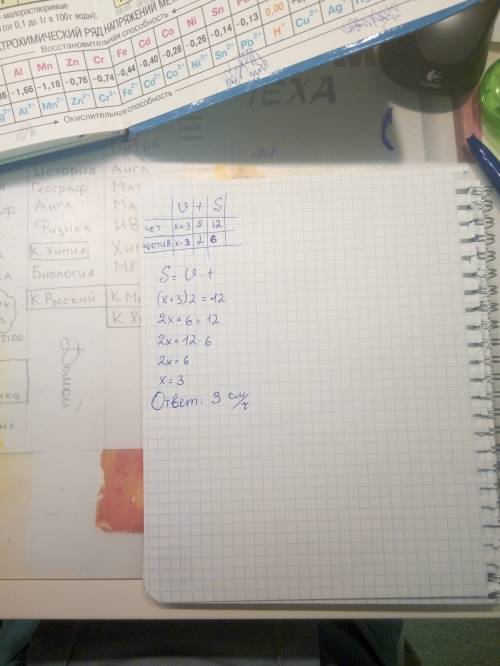 малорастворимые
(от 0,1 до 1г в 100г воды);
ТРОХИМИЧЕСКИЙ РЯД НАПРЯЖЕНИЙ МЕ
Восстановительная способность
Al Mn Zn Cr Fe Cd Co Ni Sn
-1,66 -1,18 -0,76 -0,74 -0,44 -0,40 -0,28 -0,26 -0,14 -0,13 0,00
Al³⁺ Mn²⁺ Zn²⁺ Cr³⁺ Fe²⁺ Cd²⁺ Co²⁺ Ni²⁺ Sn²⁺ Pb²⁺ H⁺ Cu²⁺ Ag⁺
Окислительная способность
Logitech
ТЕХА
История Анга
Географ Мат
Анга Ма
Физика ИВ
К. Химия Хим
Биология МХ
К. Русский К. Ма
К. Хи
21.00
Домой,
υ t S
чет x+3 2 12
против x-3 2 6
S = υ · t
(x+3)2 = 12
2x+6 = 12
2x = 12-6
2x = 6
x = 3
Ответ: 3 см/ч